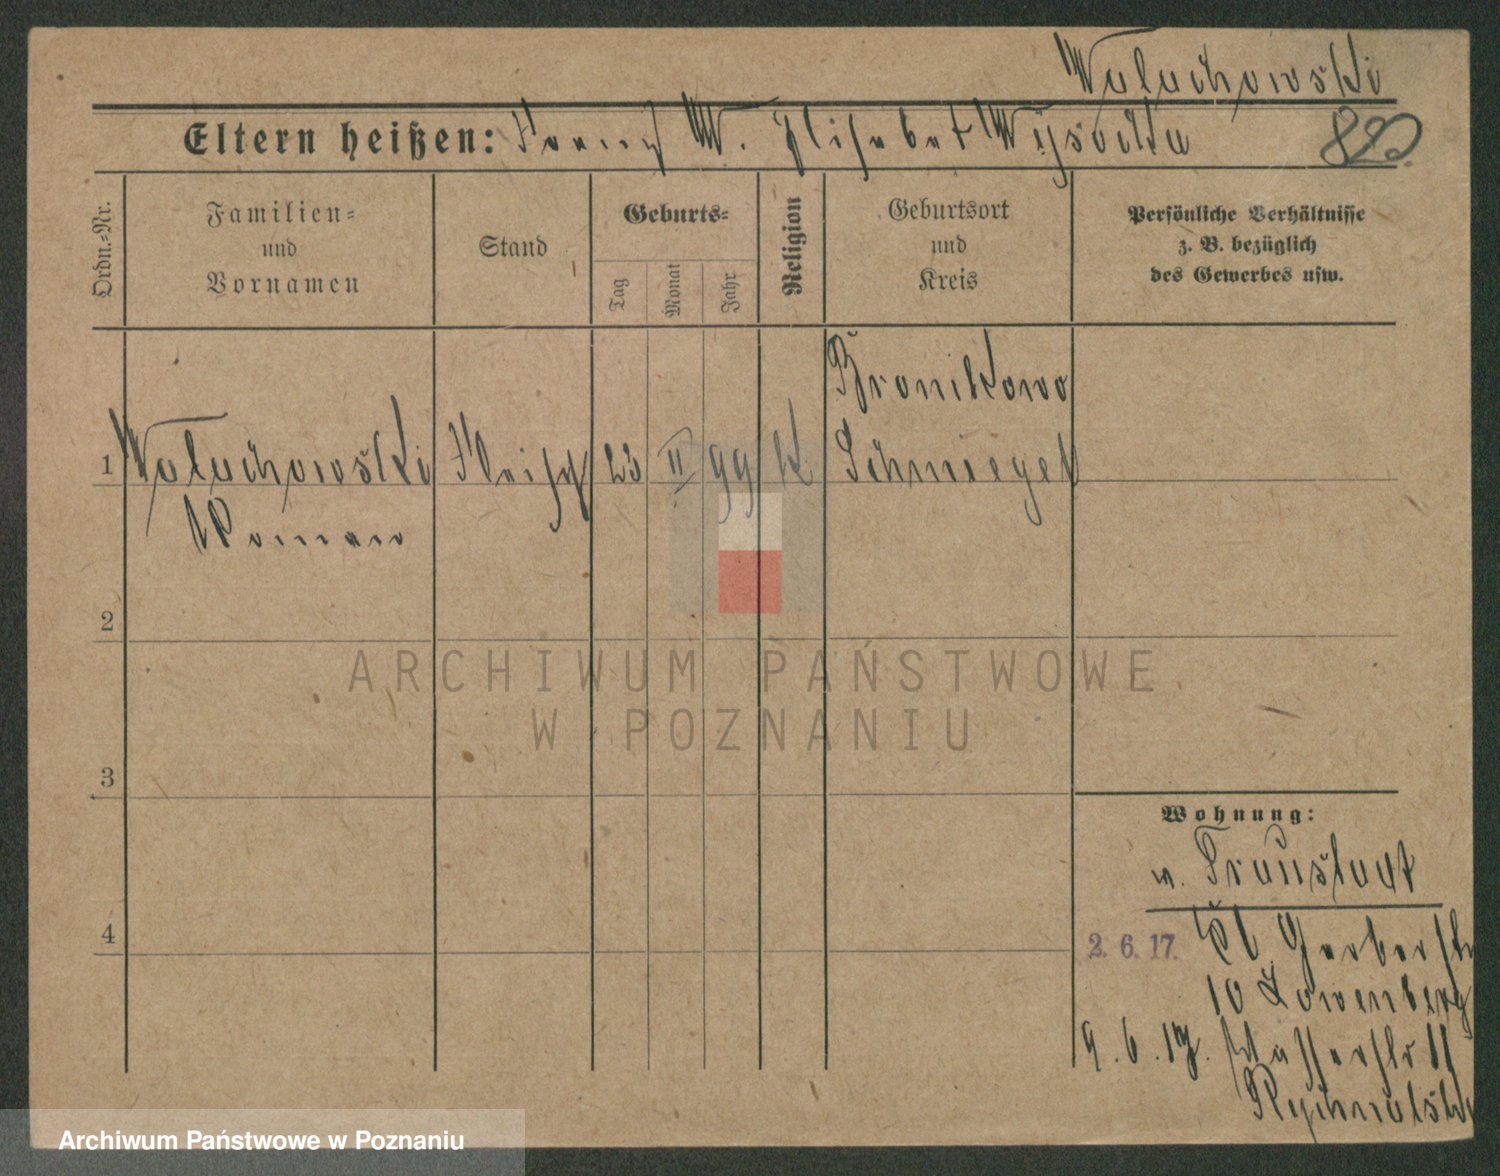 Waluchowski
Eltern heißen: Franz W. Elisabet Wysocka
Ordn.-Nr.
Familien-
und
Vornamen
Stand
Geburts-
Tag
Monat
Jahr
Religion
Geburtsort
und
Kreis
Persönliche Verhältnisse
z. B. bezüglich
des Gewerbes usw.
Bronikowo
1 Waluchowski Fleisch 23 II 99 K Schmiegel
Roman
2
ARCHIWUM PAŃSTWOWE
W POZNANIU
3
Wohnung:
v. Fraustadt
4
2. 6. 17. Kl Gerberstr
10 Lowenberg
9. 6. 17. Wasserstr 11
Archiwum Państwowe w Poznaniu